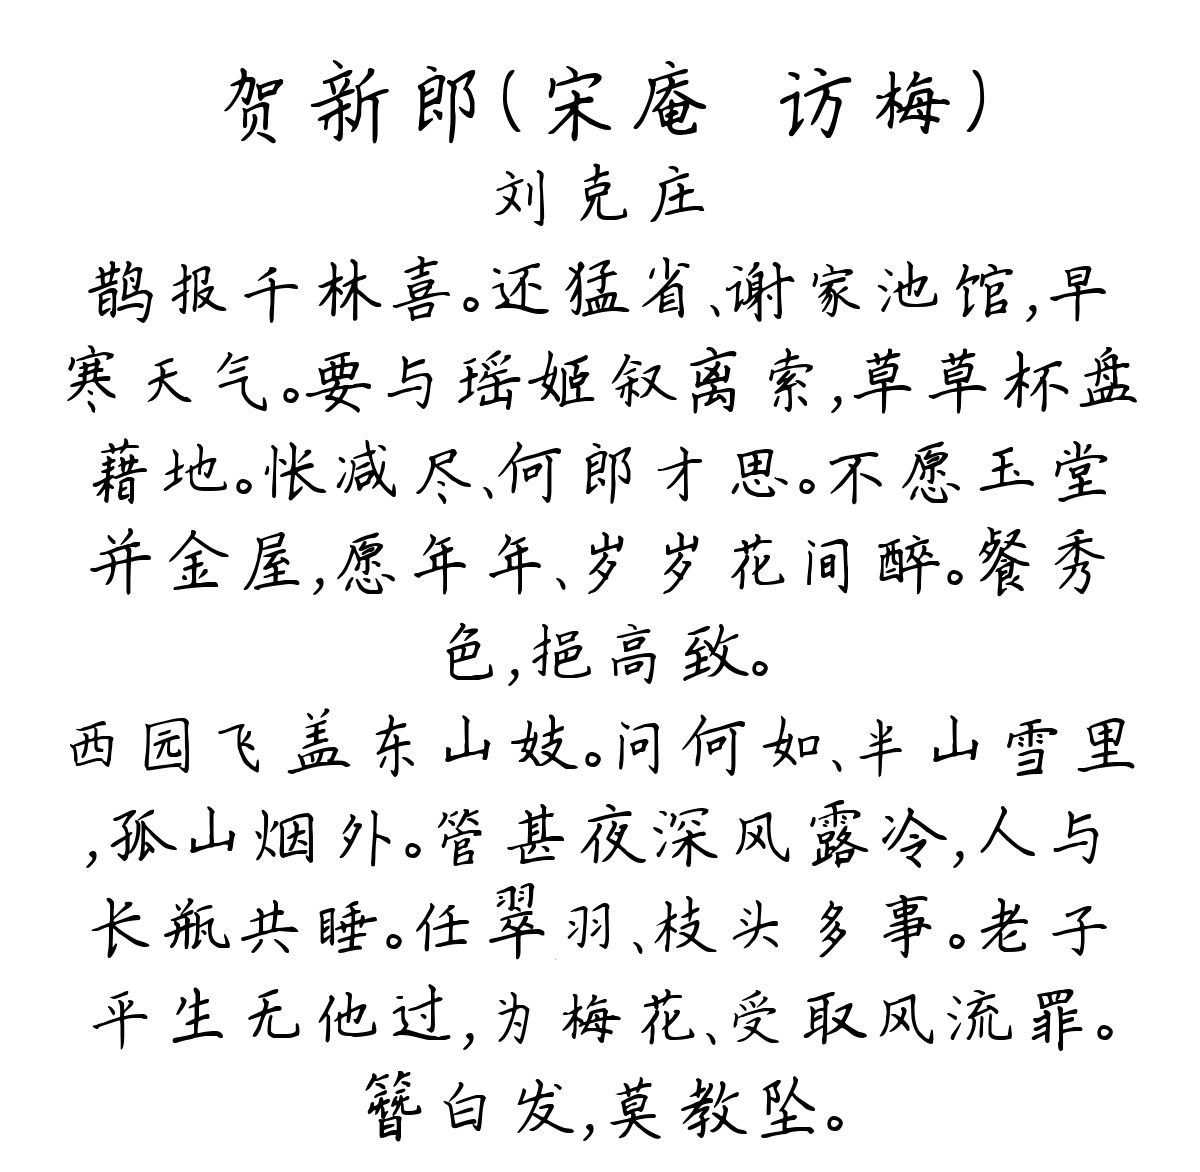 贺新郎(宋庵 访梅)
刘克庄
鹊报千林喜。还猛省、谢家池馆,早
寒天气。要与瑶姬叙离索,草草杯盘
藉地。怅减尽、何郎才思。不愿玉堂
并金屋,愿年年、岁岁花间醉。餐秀
色,挹高致。
西园飞盖东山妓。问何如、半山雪里
,孤山烟外。管甚夜深风露冷,人与
长瓶共睡。任翠羽、枝头多事。老子
平生无他过,为梅花、受取风流罪。
簪白发,莫教坠。